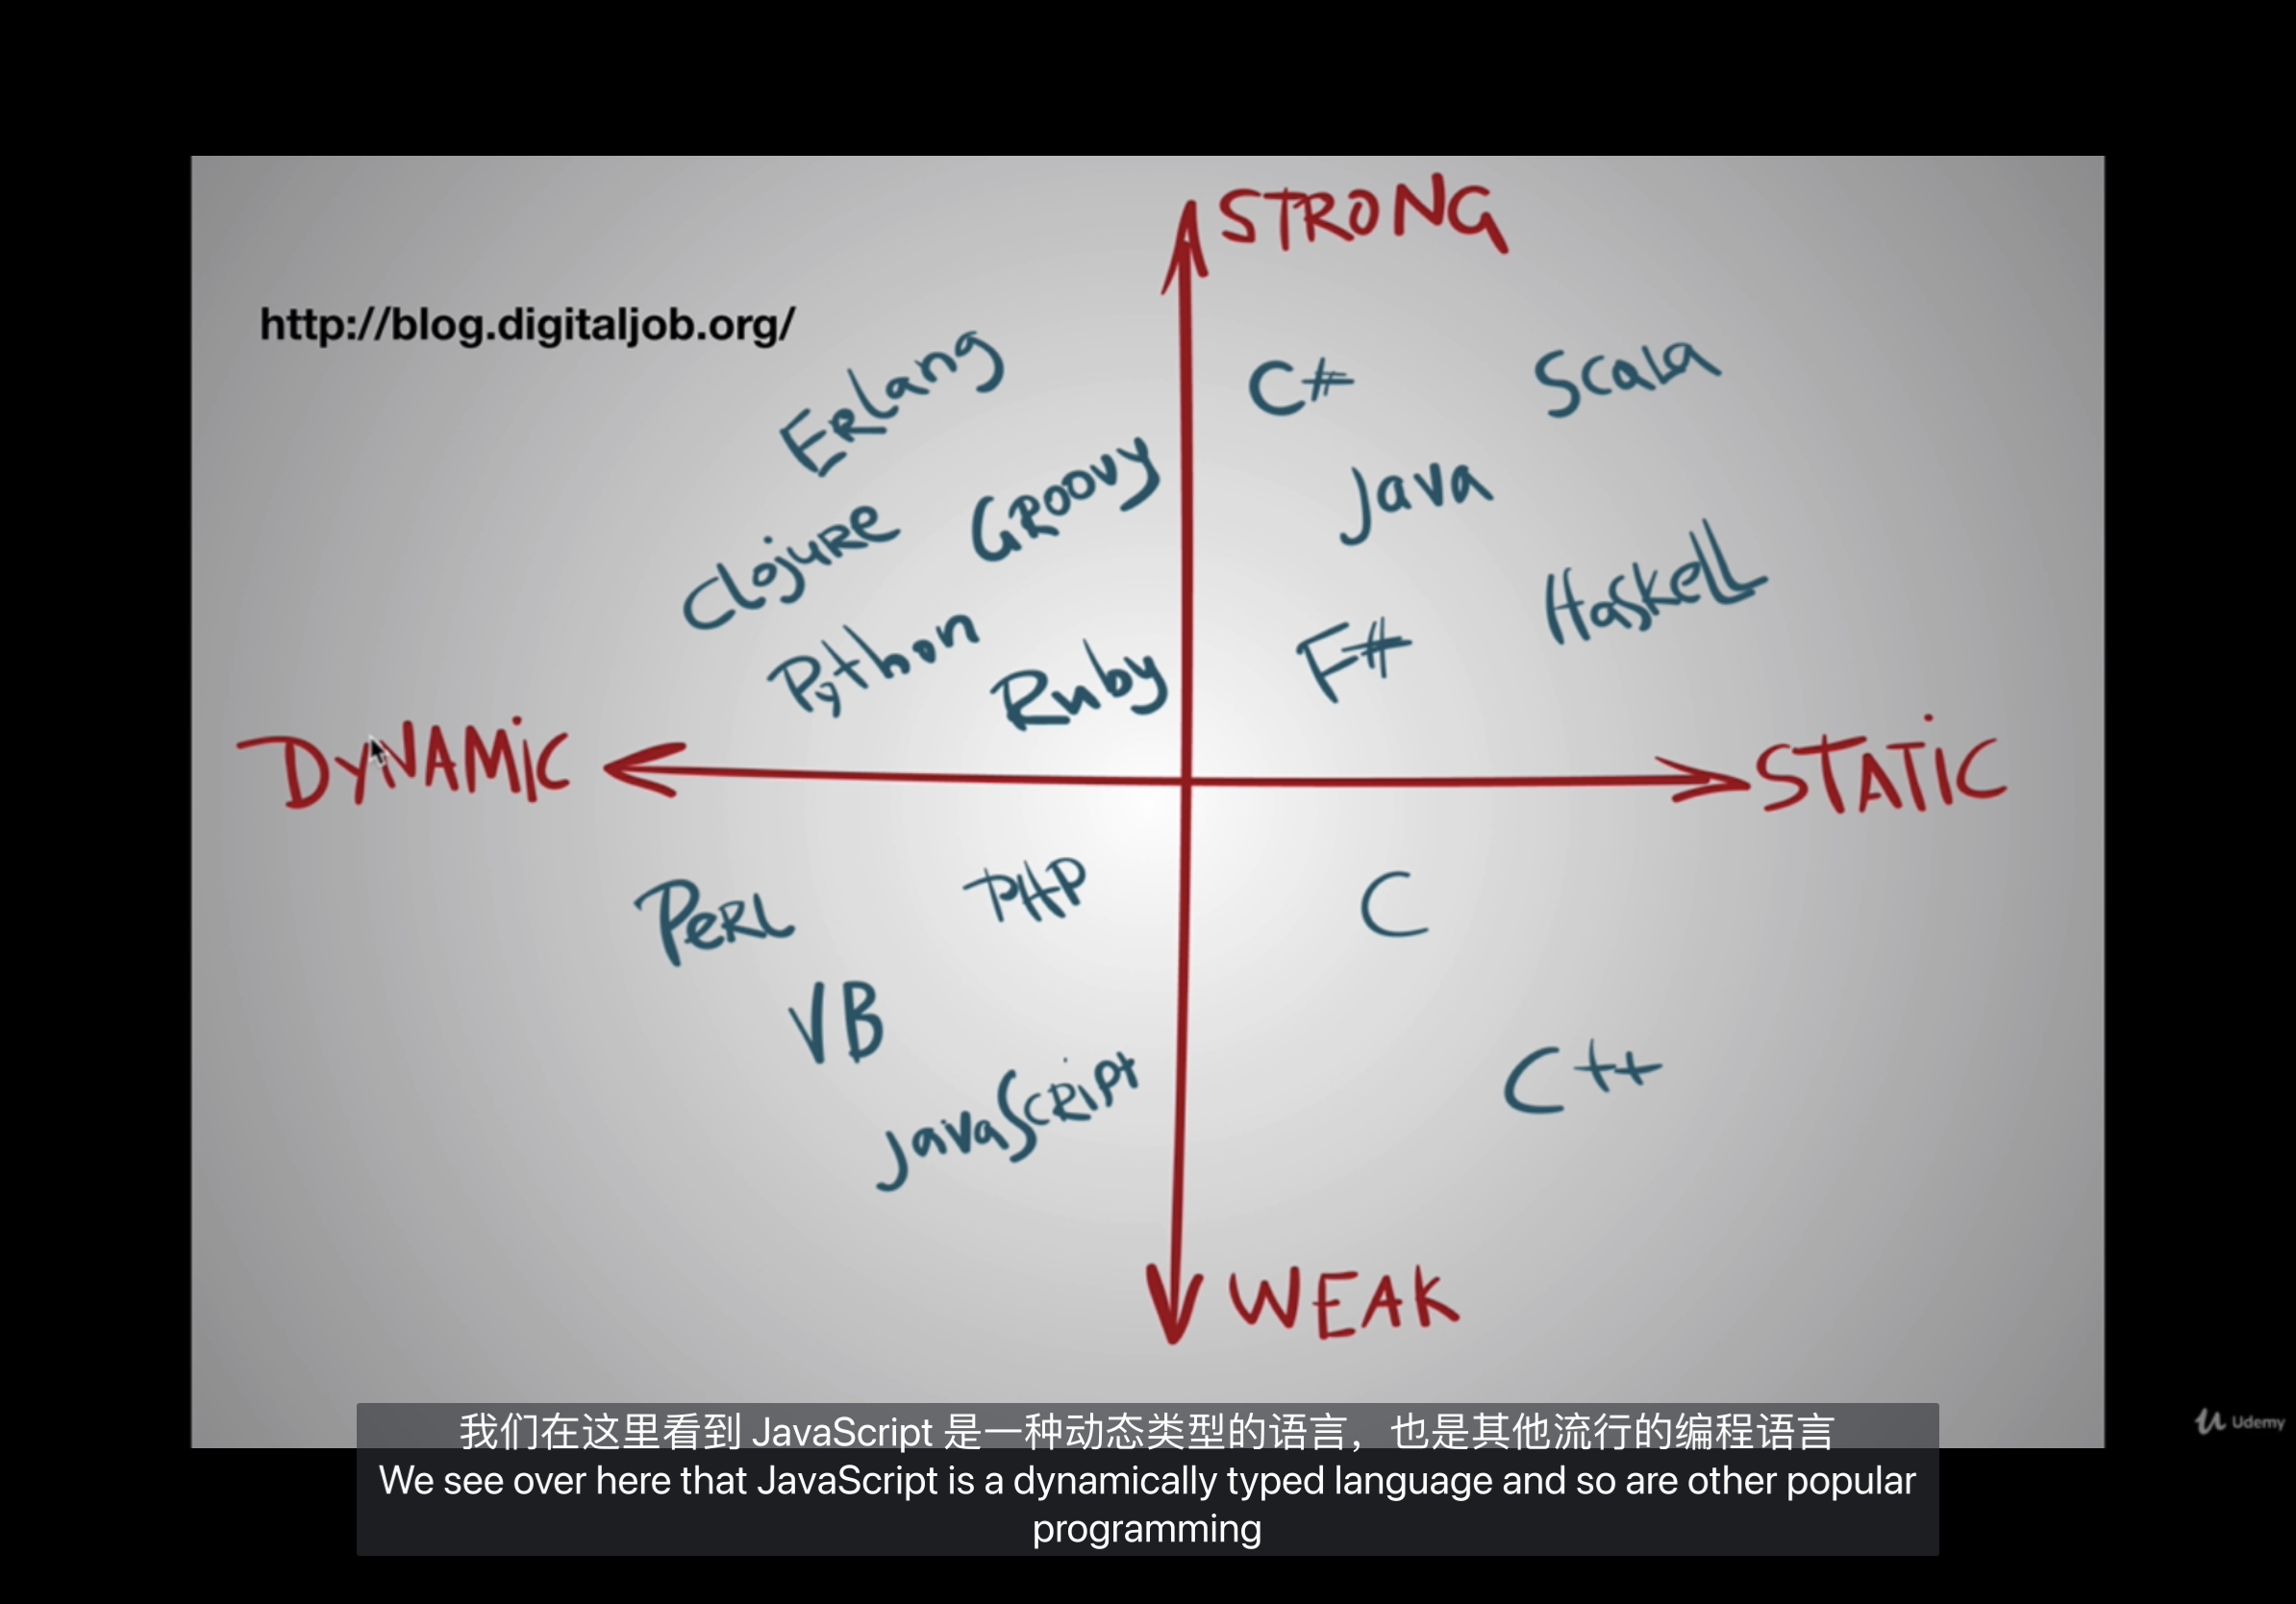 STRONG
http://blog.digitaljob.org/
Erlang
C#
Scala
Groovy
Java
Clojure
Haskell
Python
Ruby
F#
DYNAMIC
STATIC
PERL
PHP
C
VB
JavaScript
C++
WEAK
我们在这里看到 JavaScript 是一种动态类型的语言，也是其他流行的编程语言
We see over here that JavaScript is a dynamically typed language and so are other popular
programming
Udemy